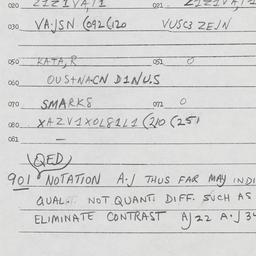 020 051
030 VA.JSN (092 (120 VUSC3 ZEJN
050 KATA,R 051 O
060 OUS+NACN D1NU.S
070 SMARKS 071 O
080 XAZV1XOL81L1 (210 (251
081 —
QED
901 NOTATION A.J THUS FAR MAY INDI
QUAL. NOT QUANTI DIFF. SUCH AS
ELIMINATE CONTRAST AJ 22 A.J 34